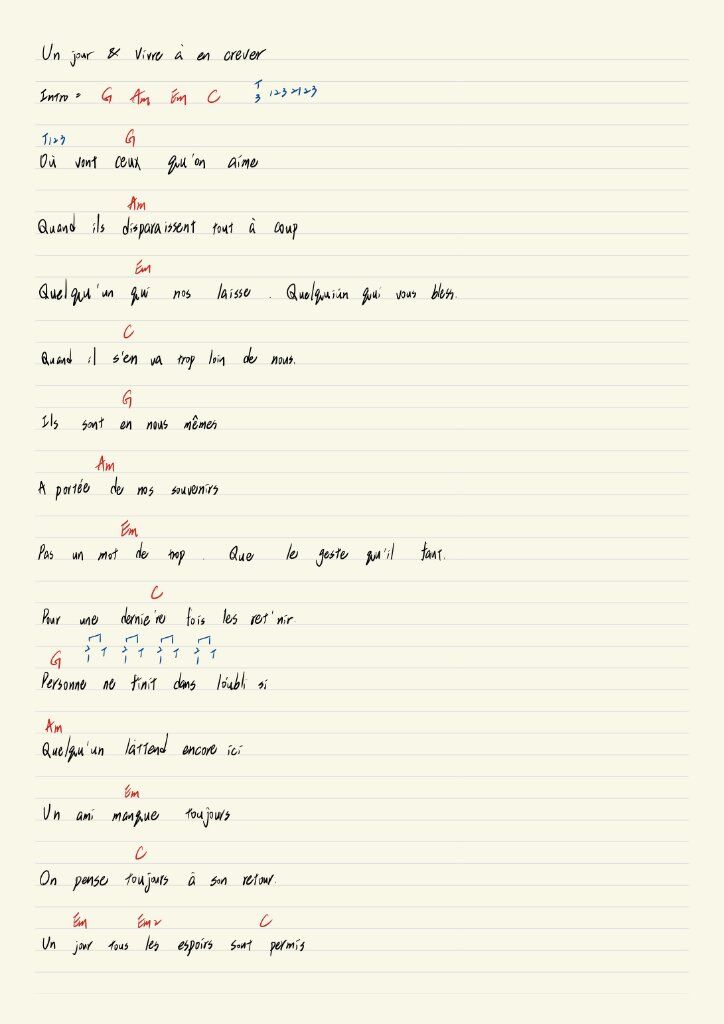 Un jour & Vivre à en crever
Intro = G Am Em C T 3 1 2 3 2 1 2 3
T123 G
Où vont ceux qu'on aime
Am
Quand ils disparaissent tout à coup
Em
Quelqu'un qui nos laisse . Quelquiùn quui vous bless.
C
Quand il s'en va trop loin de nous.
G
Ils sont en nous mêmes
Am
A portée de nos souvenirs
Em
Pas un mot de trop . Que le geste qu'il faut.
C
Pour une dernie're fois les ret'nir.
2 1 T 2 1 T 2 1 T 2 1 T
G
Personne ne finit dans l'oubli si
Am
Quelqu'un l'attend encore ici
Em
Un ami manque toujours
C
On pense toujours à son retour.
Em Em2 C
Un jour tous les espoirs sont permis